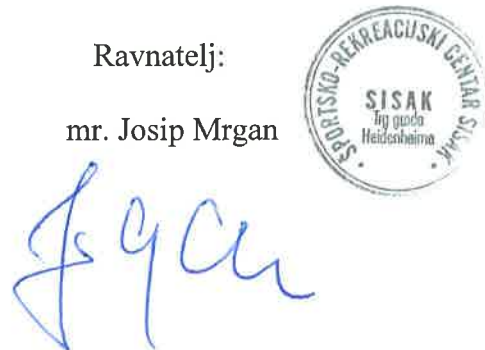 Ravnatelj:
mr. Josip Mrgan
SPORTSKO-REKREACIJSKI CENTAR SISAK
SISAK
Trg grada
Heidenheima